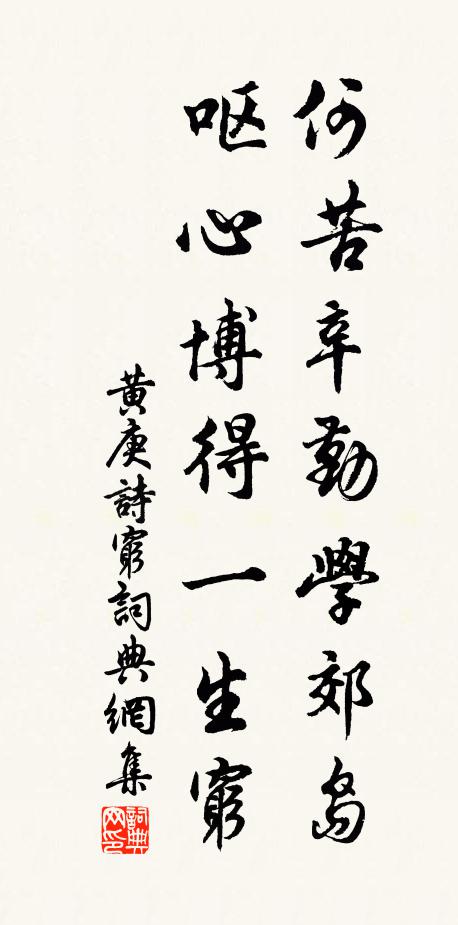 何苦辛勤學郊岛
呕心博得一生窮
黄庚詩窮詞典網集
詞典网印